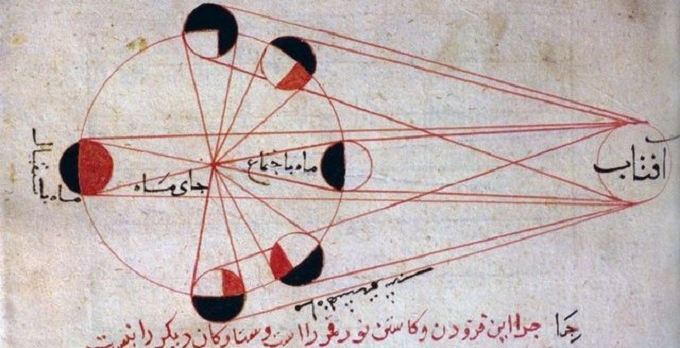 افتاب
ماه باجتماع
جای ماه
ماه باستقبال
جرا این فزودن وکاستن نور قمر را است وستارکان دیکر را نیست